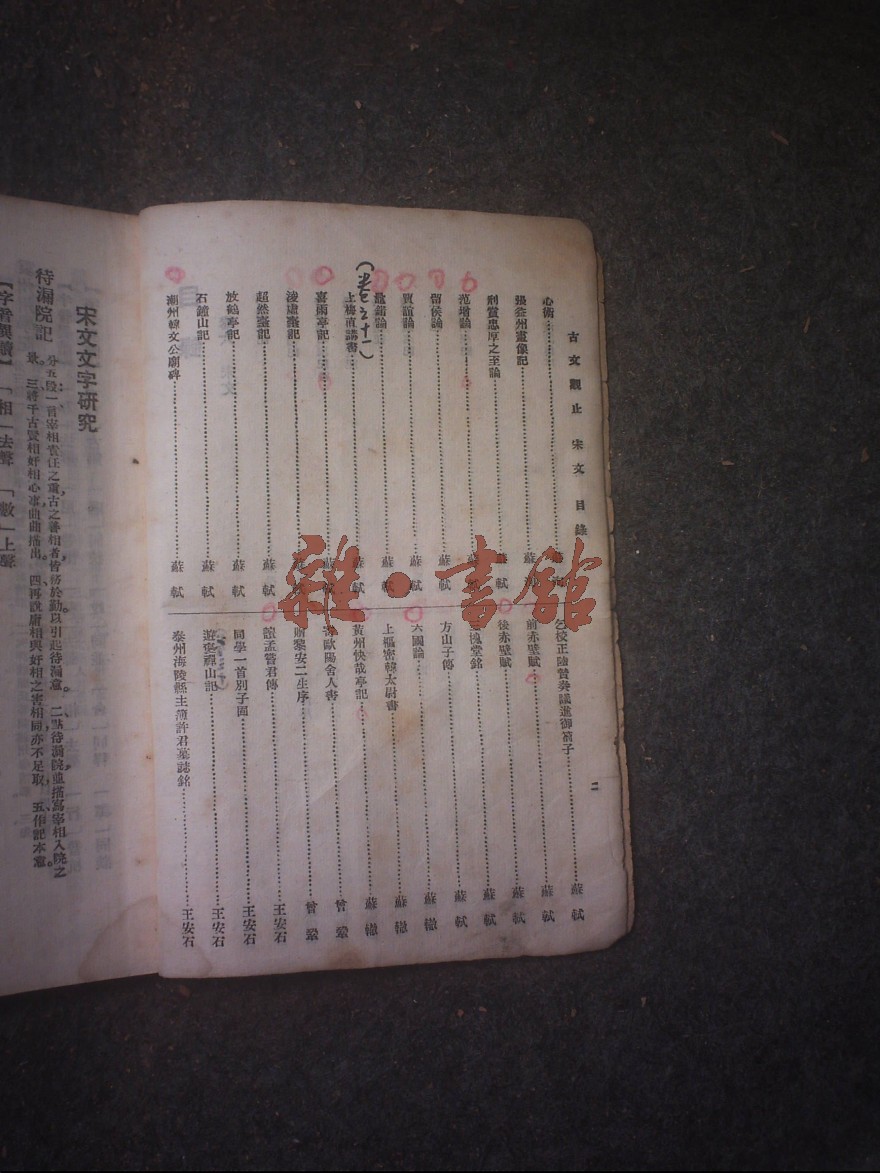 古文觀止 宋文 目錄
二
心術 蘇洵
張益州畫像記 蘇洵
刑賞忠厚之至論 蘇軾
范增論 蘇軾
留侯論 蘇軾
賈誼論 蘇軾
鼂錯論 蘇軾
上梅直講書 蘇軾
喜雨亭記 蘇軾
凌虛臺記 蘇軾
超然臺記 蘇軾
放鶴亭記 蘇軾
石鐘山記 蘇軾
潮州韓文公廟碑 蘇軾
乞校正陸贄奏議進御箚子 蘇軾
前赤壁賦 蘇軾
後赤壁賦 蘇軾
三槐堂銘 蘇軾
方山子傳 蘇軾
六國論 蘇轍
上樞密韓太尉書 蘇轍
黃州快哉亭記 蘇轍
寄歐陽舍人書 曾鞏
贈黎安二生序 曾鞏
讀孟嘗君傳 王安石
同學一首別子固 王安石
遊褒禪山記 王安石
泰州海陵縣主簿許君墓誌銘 王安石
宋文文字研究
待漏院記
分五段一首宰相責任之重古之善相者皆務於勤以引起待漏意。二點待漏院並描寫宰相入院之
景。三將千古賢相奸相心事曲曲描出。四再說庸相與奸相之害相同亦不足取。五作記本意。
【字音異讀】「相」去聲「數」上聲
雜·書館